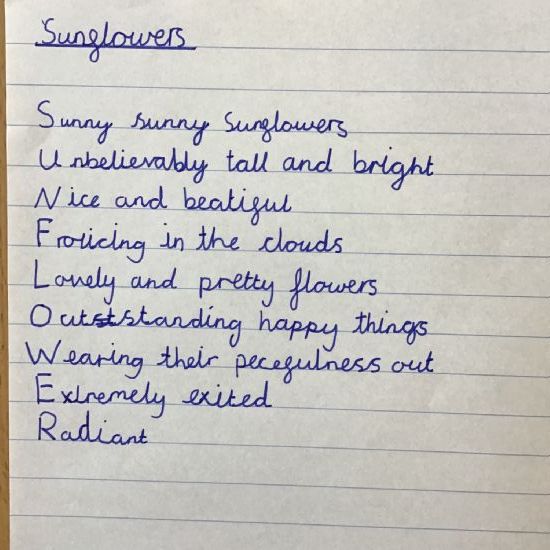 Sunflowers
Sunny sunny Sunflowers
Unbelievably tall and bright
Nice and beatiful
Frolicing in the clouds
Lovely and pretty flowers
Outststanding happy things
Wearing their pecefulness out
Extremely exited
Radiant